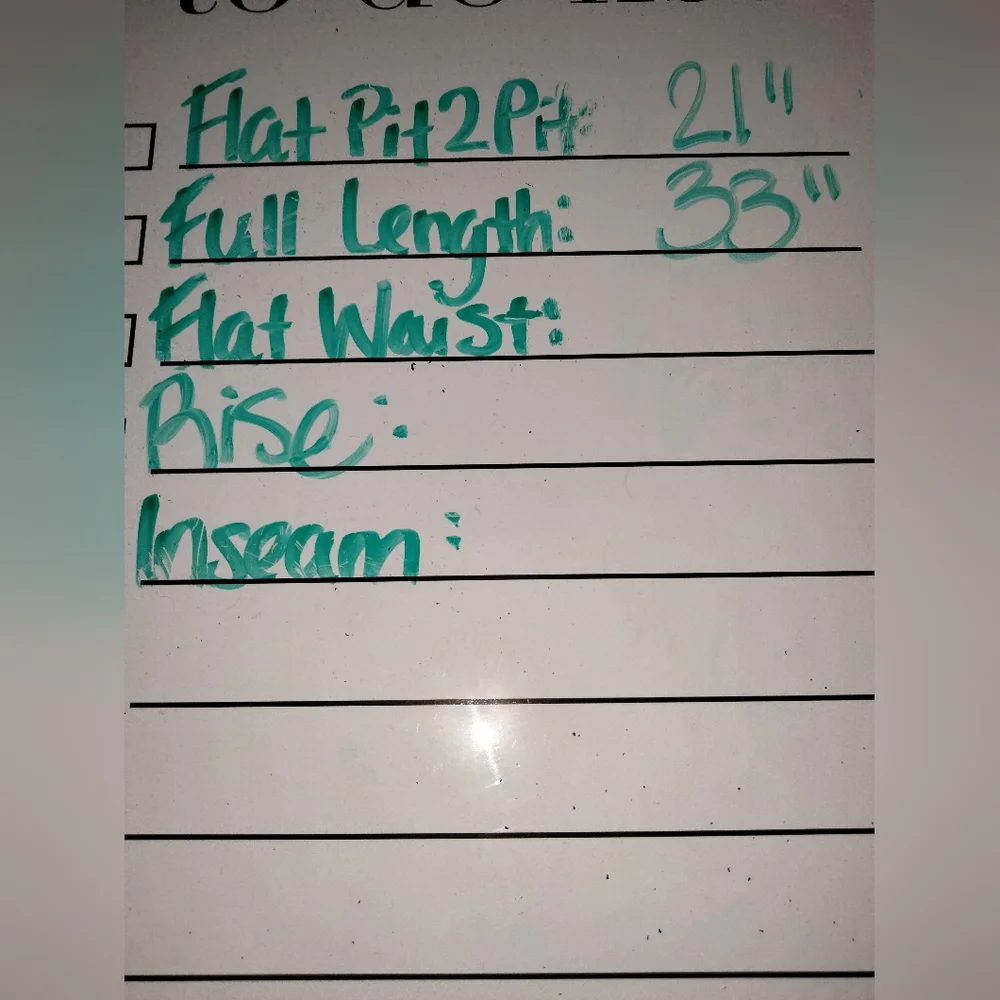 to do list
Flat Pit2Pit: 21"
Full Length: 33"
Flat Waist:
Rise:
Inseam: